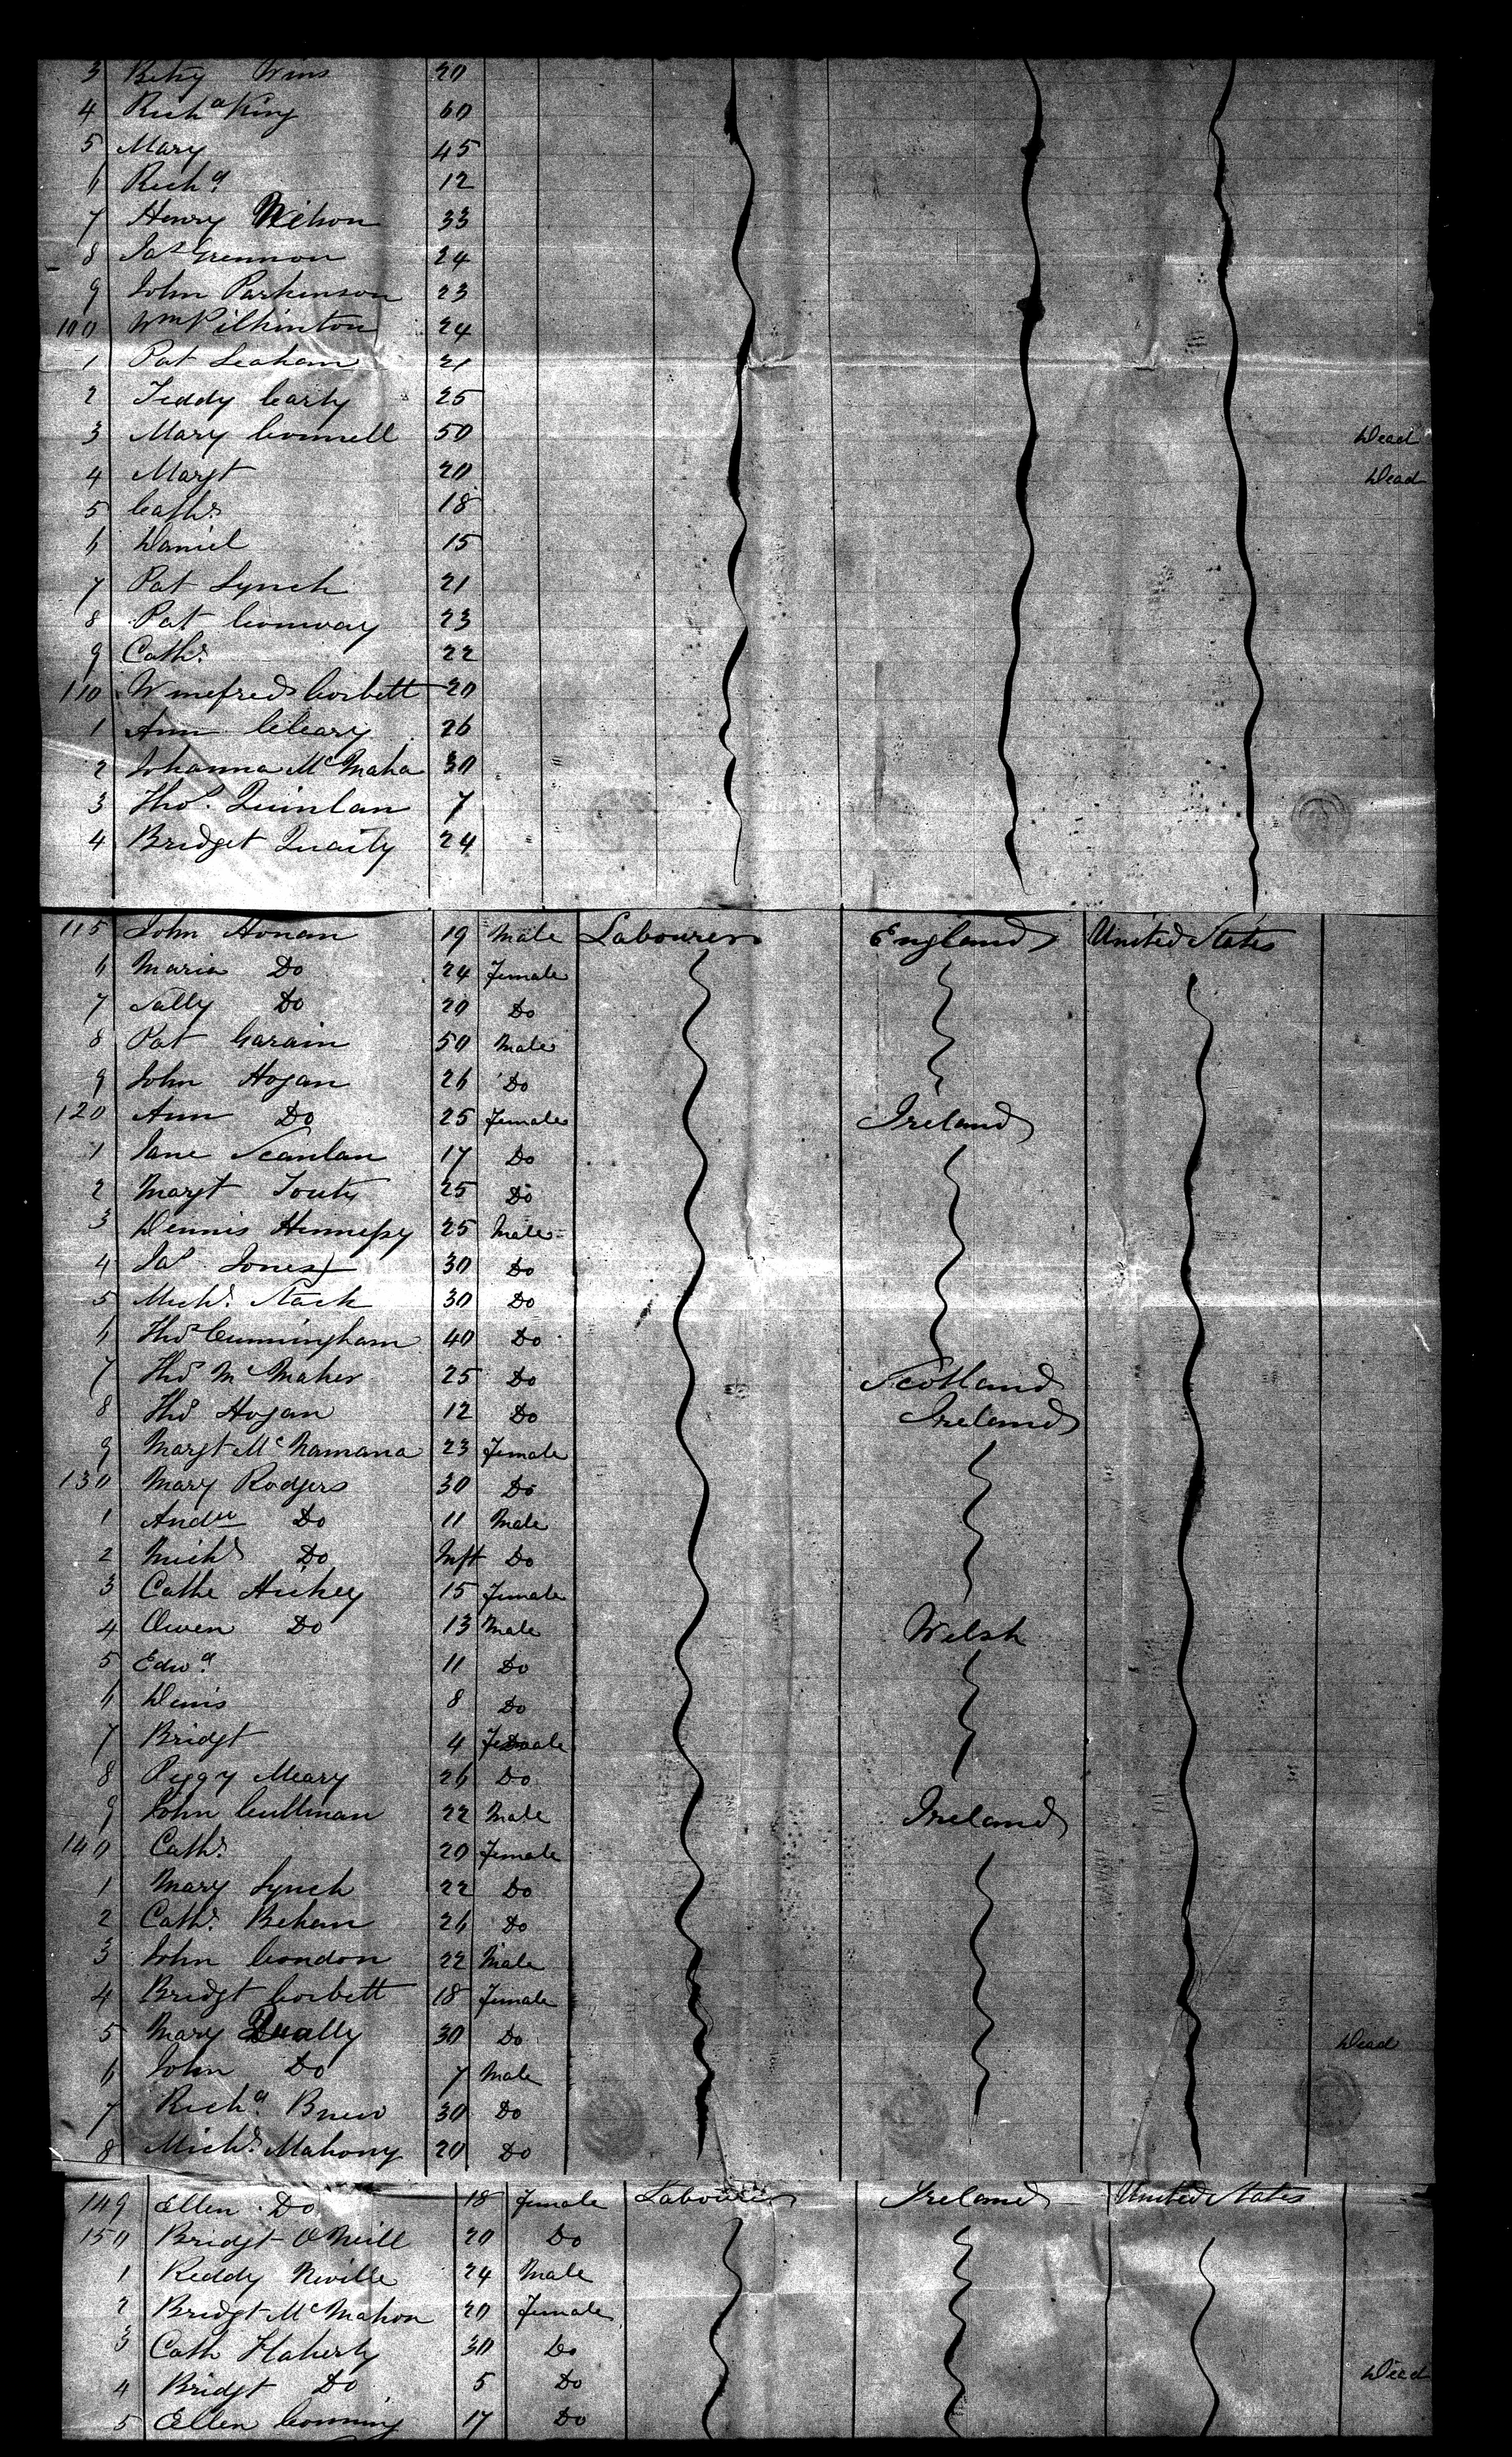 3 Betsy Wins 20
4 Richd King 60
5 Mary 45
6 Richd 12
7 Henry Wilson 33
8 Jas Grennon 24
9 John Parkinson 23
100 Wm Pilkinton 24
1 Pat Leaham 21
2 Teddy Carty 25
3 Mary Connell 50 Dead
4 Margt 20 Dead
5 Cathe 18
6 Daniel 15
7 Pat Lynch 21
8 Pat Conway 23
9 Cathe 22
110 Winefred Corbett 20
1 Ann Cleary 26
2 Johanna McMaha 30
3 Thos Quinlan 7
4 Bridget 24
115 John Honan 19 Male Labourers England United States
6 Maria Do 24 Female
7 Sally Do 20 Do
8 Pat Garain 50 Male
9 John Hogan 26 Do
120 Ann Do 25 Female Ireland
1 Jane Scanlan 17 Do
2 Margt 25 Do
3 Dennis Hennessy 25 Male
4 Jas Jones 30 Do
5 Michl Stack 30 Do
6 Thos Cunningham 40 Do
7 Thos McMaher 25 Do Scotland
8 Thos Hogan 12 Do Ireland
9 Margt McNamana 23 Female
130 Mary Rodgers 30 Do
1 Andw Do 11 Male
2 Michl Do Inft Do
3 Cathe Hickey 15 Female
4 Owen Do 13 Male Welsh
5 Edwd 11 Do
6 Denis 8 Do
7 Bridgt 4 Female
8 Peggy Meary 26 Do
9 John Cullinan 22 Male Ireland
140 Cathe 20 Female
1 Mary Lynch 22 Do
2 Cathe Behan 26 Do
3 John Condon 22 Male
4 Bridgt Corbett 18 Female
5 Mary Qually 30 Do Dead
6 John Do 7 Male
7 Richd Brew 30 Do
8 Michl Mahony 20 Do
149 Ellen Do 18 Female Labourers Ireland United States
150 Bridgt O'Neill 20 Do
1 Reddy Neville 24 Male
2 Bridgt McMahon 20 Female
3 Cath Flaherty 30 Do
4 Bridgt Do 5 Do Dead
5 Ellen 17 Do